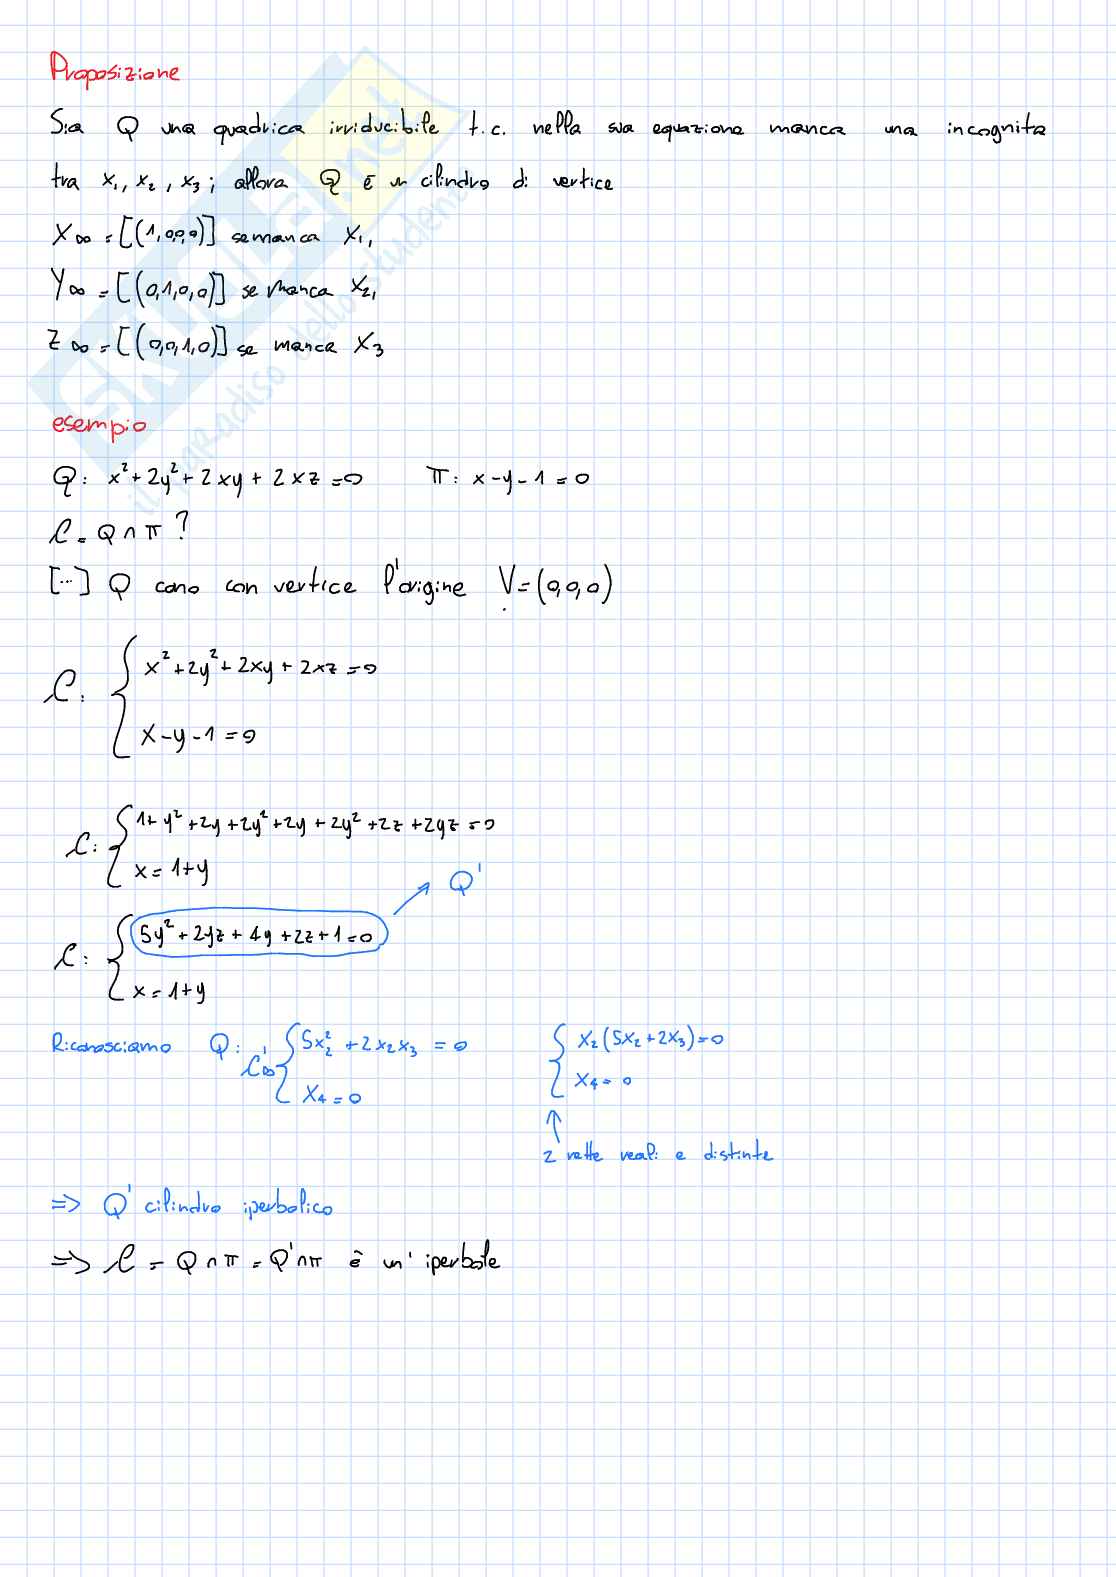 Proposizione
Sia Q una quadrica irriducibile t.c. nella sua equazione manca una incognita
tra x₁, x₂, x₃; allora Q è un cilindro di vertice
X∞ = [(1,0,0,0)] se manca x₁,
Y∞ = [(0,1,0,0)] se manca x₂,
Z∞ = [(0,0,1,0)] se manca x₃
esempio
Q: x² + 2y² + 2xy + 2xz = 0 π: x-y-1 = 0
C = Q ∩ π ?
[...] Q cono con vertice l'origine V = (0,0,0)
C: { x² + 2y² + 2xy + 2xz = 0
x-y-1 = 0
C: { 1 + y² + 2y + 2y² + 2y + 2y² + 2z + 2yz = 0
x = 1+y
Q'
C: { 5y² + 2yz + 4y + 2z + 1 = 0
x = 1+y
Riconosciamo Q: C'∞ { 5x₂² + 2x₂x₃ = 0 { x₂(5x₂ + 2x₃) = 0
x₄ = 0 x₄ = 0
2 rette reali e distinte
=> Q' cilindro iperbolico
=> C = Q ∩ π = Q' ∩ π è un' iperbole
SKUOLA.net
il paradiso dello studente